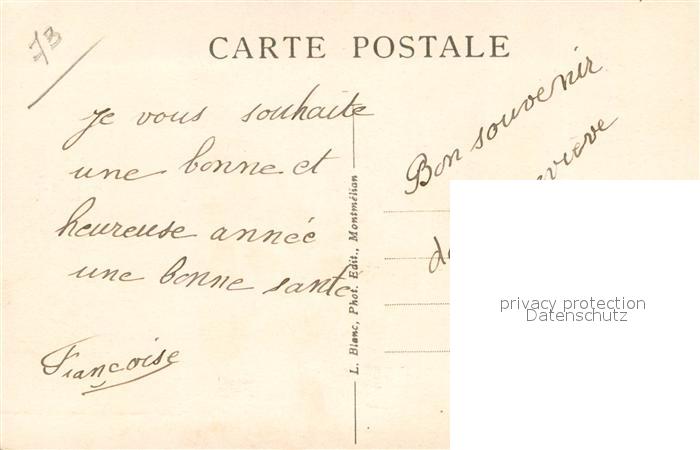 73
CARTE POSTALE
Je vous souhaite
une bonne et
heureuse année
une bonne santé
Françoise
L. Blanc, Phot. Edit., Montmélian
Bon souvenir
privacy protection
Datenschutz